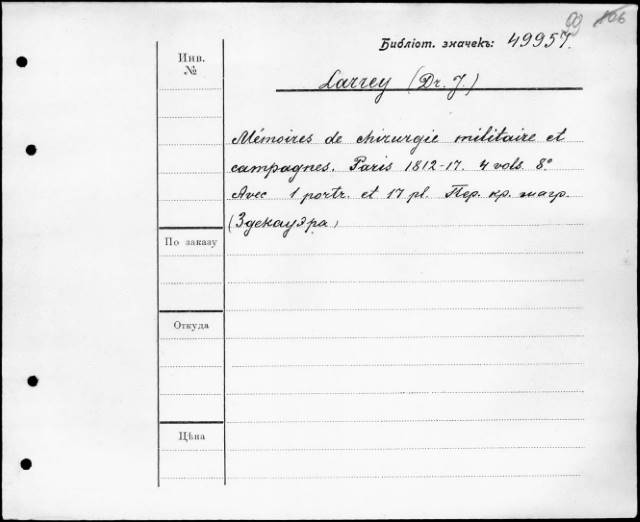 99 106
Библіот. значекъ: 49957.
Инв.
№
Larrey (Dr. J.)
Mémoires de chirurgie militaire et
campagnes. Paris 1812-17. 4 vols. 8°
Avec 1 portr. et 17 pl. Пер. кр. шагр.
(Здекауэра)
По заказу
Откуда
Цѣна